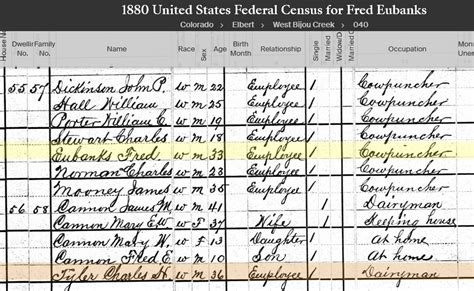 1880 United States Federal Census for Fred Eubanks
Colorado > Elbert > West Bijou Creek > 040
House No Dwelling No. Family No. Name Race Sex Age Birth Month Relationship Single Married Widow/D Married Occupation Month Unem
55 57 Dickinson John P. W M 22 Employee 1 Cowpuncher
Hall William W M 25 Employee 1 Cowpuncher
Porter William C. W M 19 Employee 1 Cowpuncher
Stewart Charles W M 18 Employee 1 Cowpuncher
Eubanks Fred W M 33 Employee 1 Cowpuncher
Norman Charles W M 23 Employee 1 Cowpuncher
Mooney James W M 35 Employee 1 Cowpuncher
56 58 Cannon James M. W M 41 1 Dairyman
Cannon Mary E W F 37 Wife 1 Keeping house
Cannon Mary W. W F 13 Daughter 1 At home
Cannon Fred E. W M 10 Son 1 At home
Tyler Charles H. W M 36 Employee 1 Dairyman